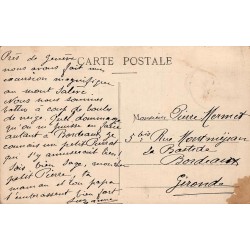 CARTE POSTALE
Près de Genève
nous avons fait une
excursion magnifique
au mont Salève
Nous nous sommes
battus à coup de boules
de neige. Quel dommage
qu'on ne puisse en faire
autant à Bordeaux, je
connais un petit Pierrot
qui s'y amuserait bien
Sois bien sage, mon
petit Pierre, ta
maman et ton papa
t'embrassent bien fort
Monsieur Pierre Mermet
5 bis Rue Montméjean
La Bastide
Bordeaux
Gironde